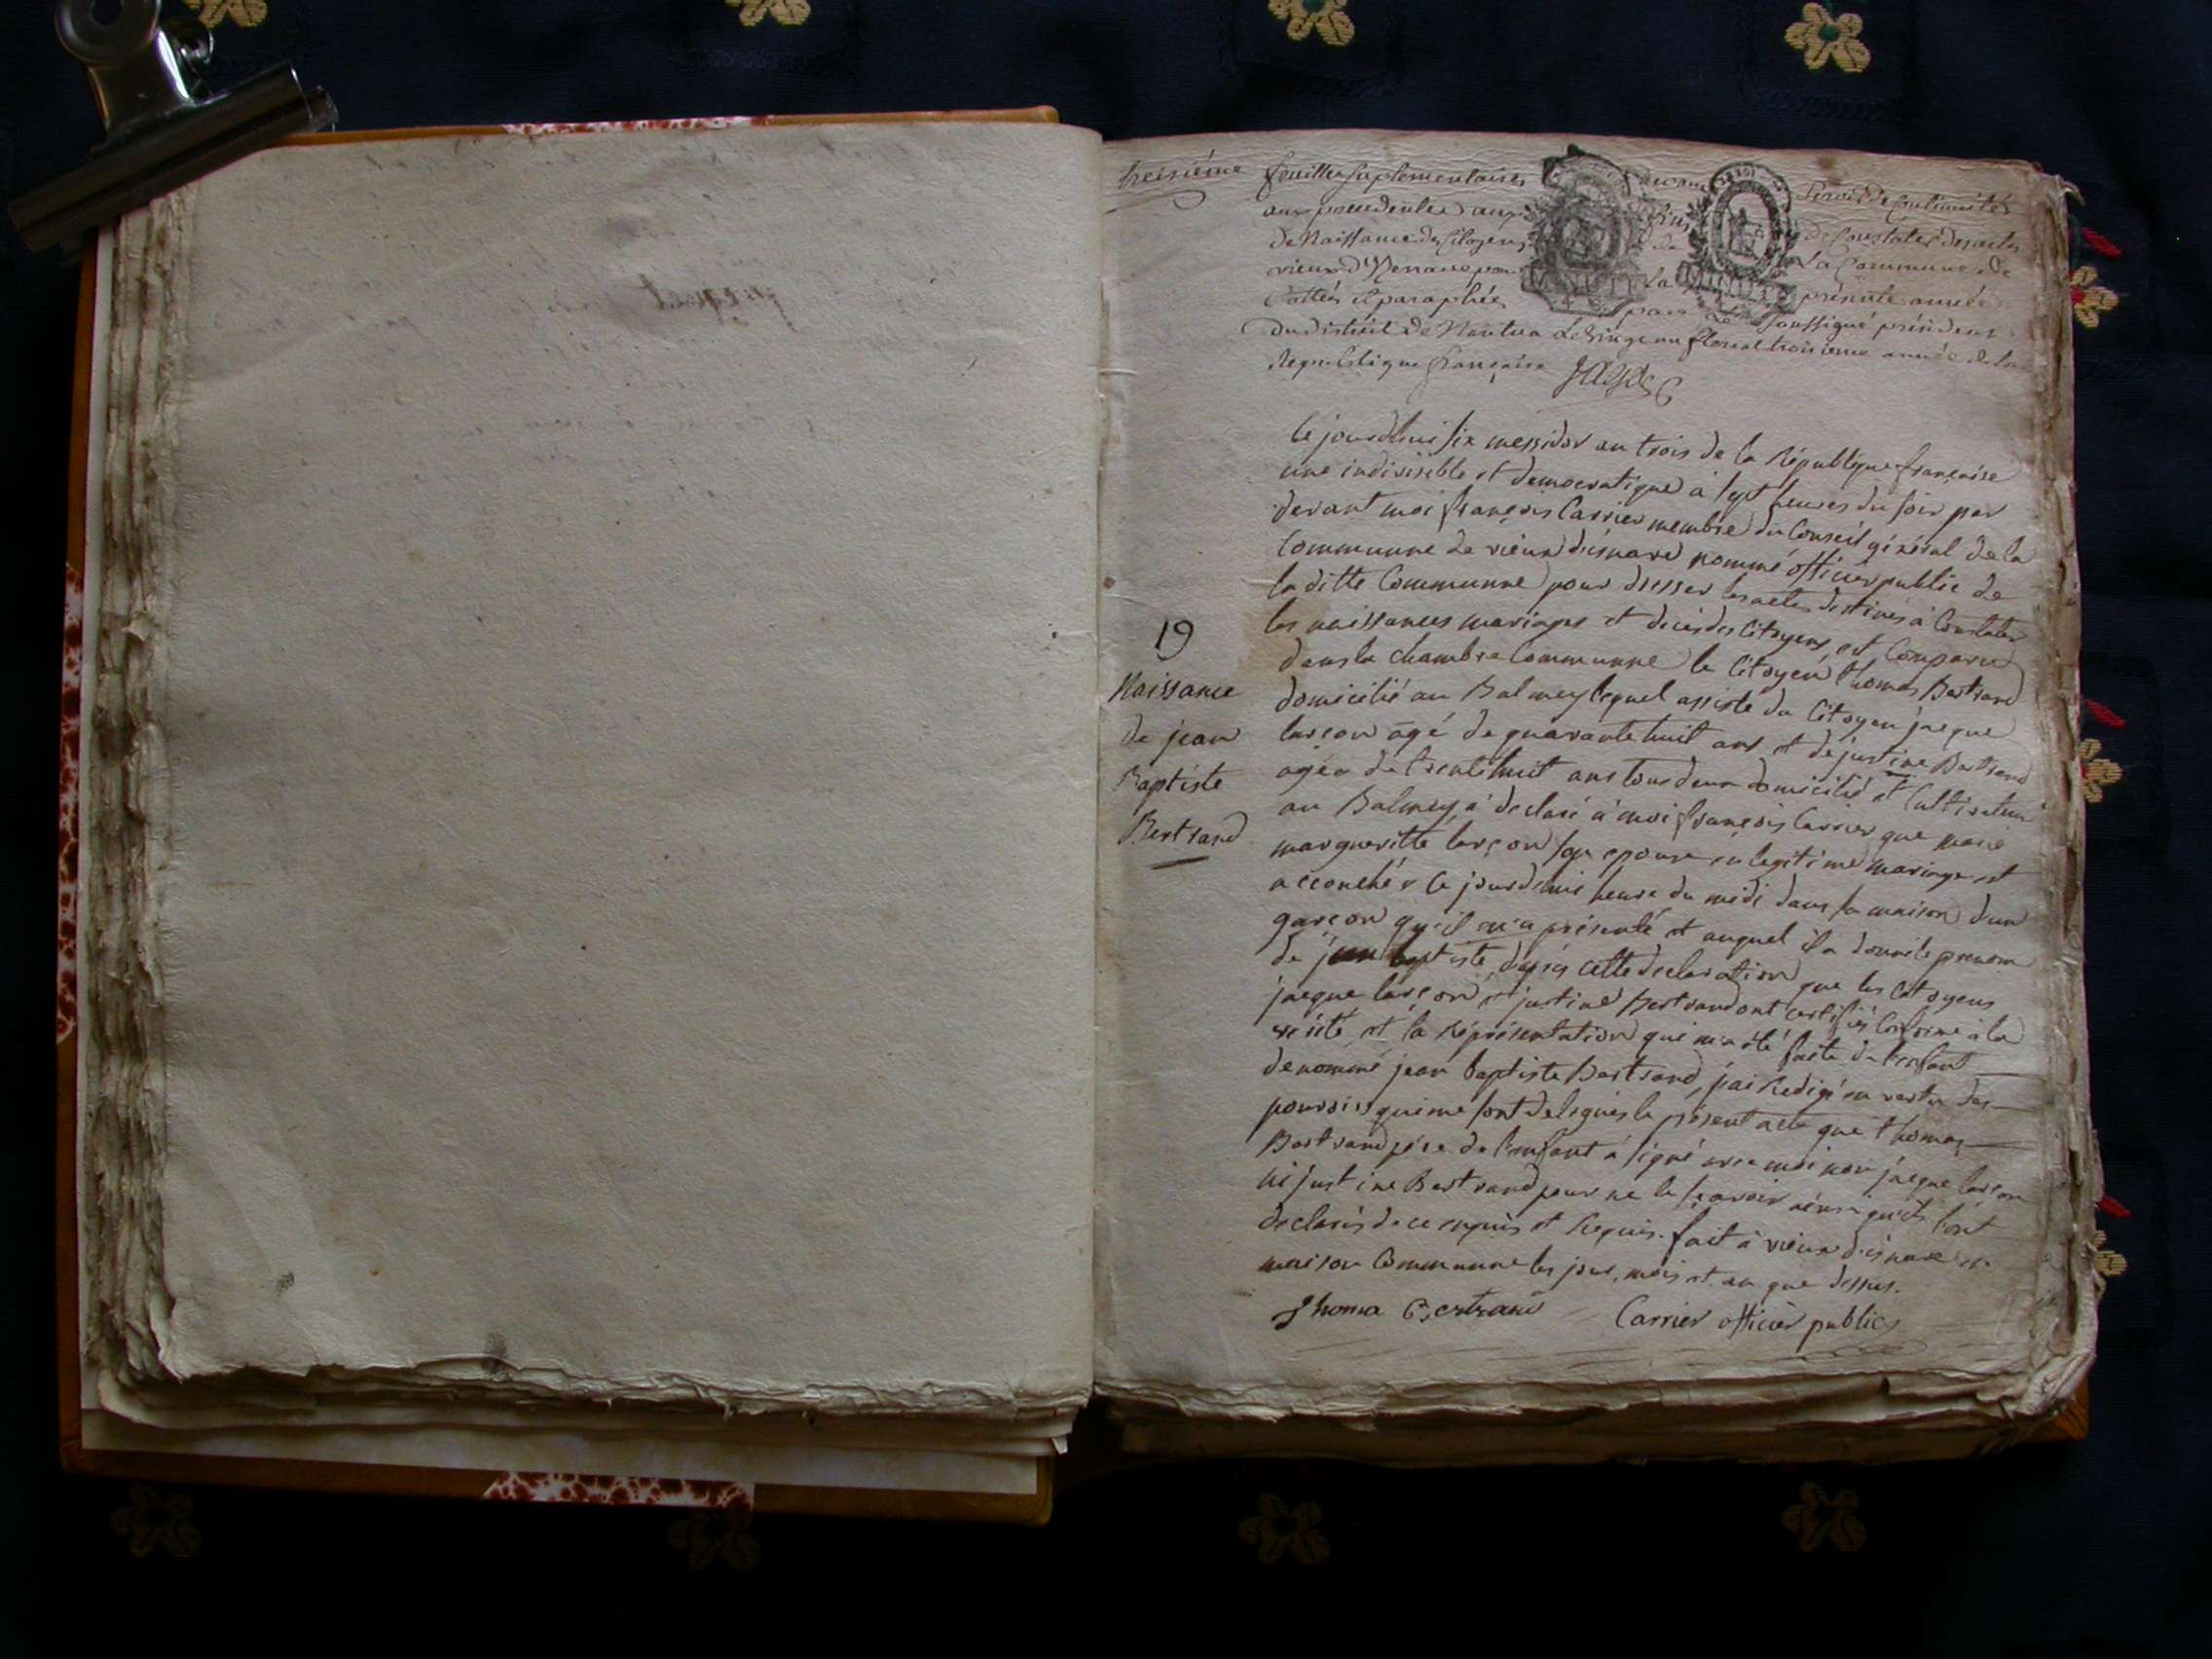 treisième feuilles suplementaires devant Servir de Continuités
aux precedentes aux fins de Constater des actes
de Naissance des Citoyens de La Commune de
vieux d'Yzenave pour la présente année
Cottées et paraphées par Le Soussigné président
du district de Nantua Le vingt un floreal troisieme année de la
Republique française
Ce jourdhui six messidor an trois de la République française
une indivisible et democratique à sept heures du soir par
devant moi françois Carrier membre du Conseil général de la
Communne de vieux disnave nommé officier public de
la ditte Communne pour dresser les actes destinés à Constater
les naissances mariages et décès des Citoyens, est Comparu
dans la chambre Communne le Citoyen thomas Bertrand
domicilié au Balmey lequel assisté du Citoyen jacque
larçon âgé de quarante huit ans et de justine Bertrand
agée de trente huit ans tous deux domicilié et Cultivateur
au Balmey, a declaré à moi françois Carrier que marie
margueritte larçon son epouse en legitime mariage est
accouchée ce jourdhui heure du midi dans sa maison d'un
garçon qu'il m'a présenté et auquel il a donné le prenom
de jean baptiste, d'après cette declaration que les Citoyens
jacque larçon et justine Bertrand ont certifiés Conforme a la
verité, et la réprésentation qui m'a été faite de l'enfant
denommé jean baptiste Bertrand, j'ai redigé en vertu des
pouvoirs qui me sont delegués le présent acte que thomas
Bertrand père de l'enfant a signé avec moi non jacque larçon
ni justine Bertrand pour ne le sçavoir ainsi qu'ils l'ont
declarés de ce enquis et Requis. fait à vieux disnave en
maison Communne les jour, mois et an que dessus.
Thoma Bertrand Carrier officier public
19
Naissance
de jean
Baptiste
Bertrand